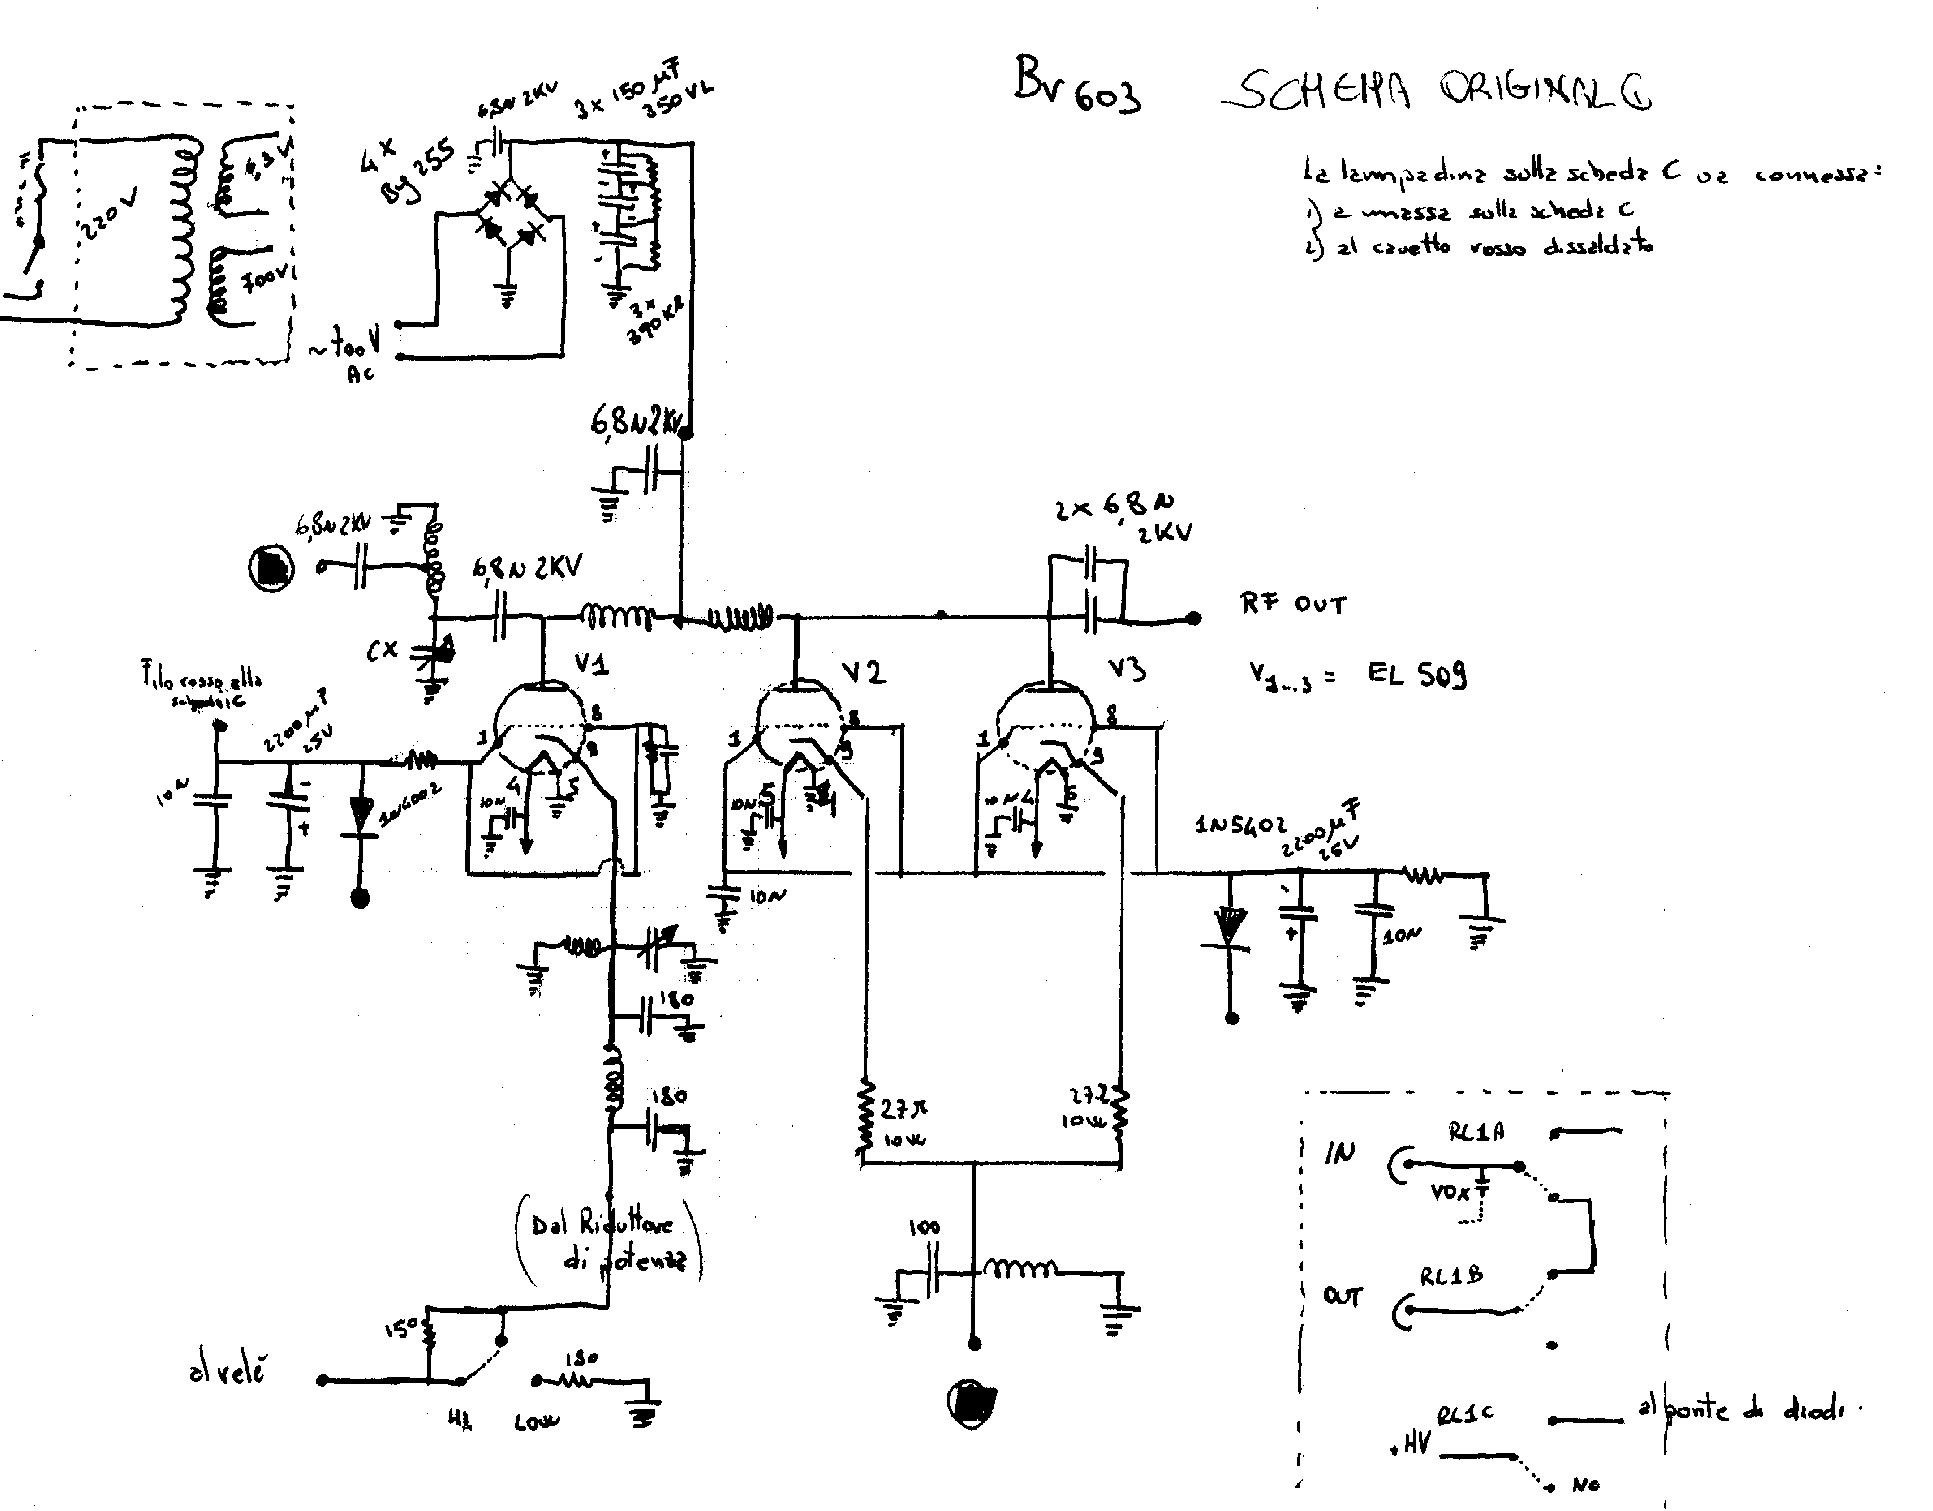 BV 603 SCHEMA ORIGINALE
La lampadina sulla scheda C va connessa:
1) a massa sulla scheda C
2) al cavetto rosso dissaldato
220V
6,3V
700V
4x
By 255
6,8N 2KV
3x 150 µF
350VL
3x
390KΩ
~700V
AC
6,8N2KV
6,8N2KV
6,8N 2KV
2x 6,8N
2KV
RF OUT
CX
V1
V2
V3
V1...3 = EL 509
Filo rosso alla
10N
2200µF
25V
1N4002
1
8
4
5
10N
1
8
10N
5
4
10N
1
8
9
10N
4
5
1N5402
2200µF
25V
10N
180
180
27Ω
10W
27Ω
10W
(Dal Riduttore
di potenza)
100
150
al relè
HI
LOW
180
IN
RL1A
VOX
OUT
RL1B
RL1C
+HV
al ponte di diodi.
NO